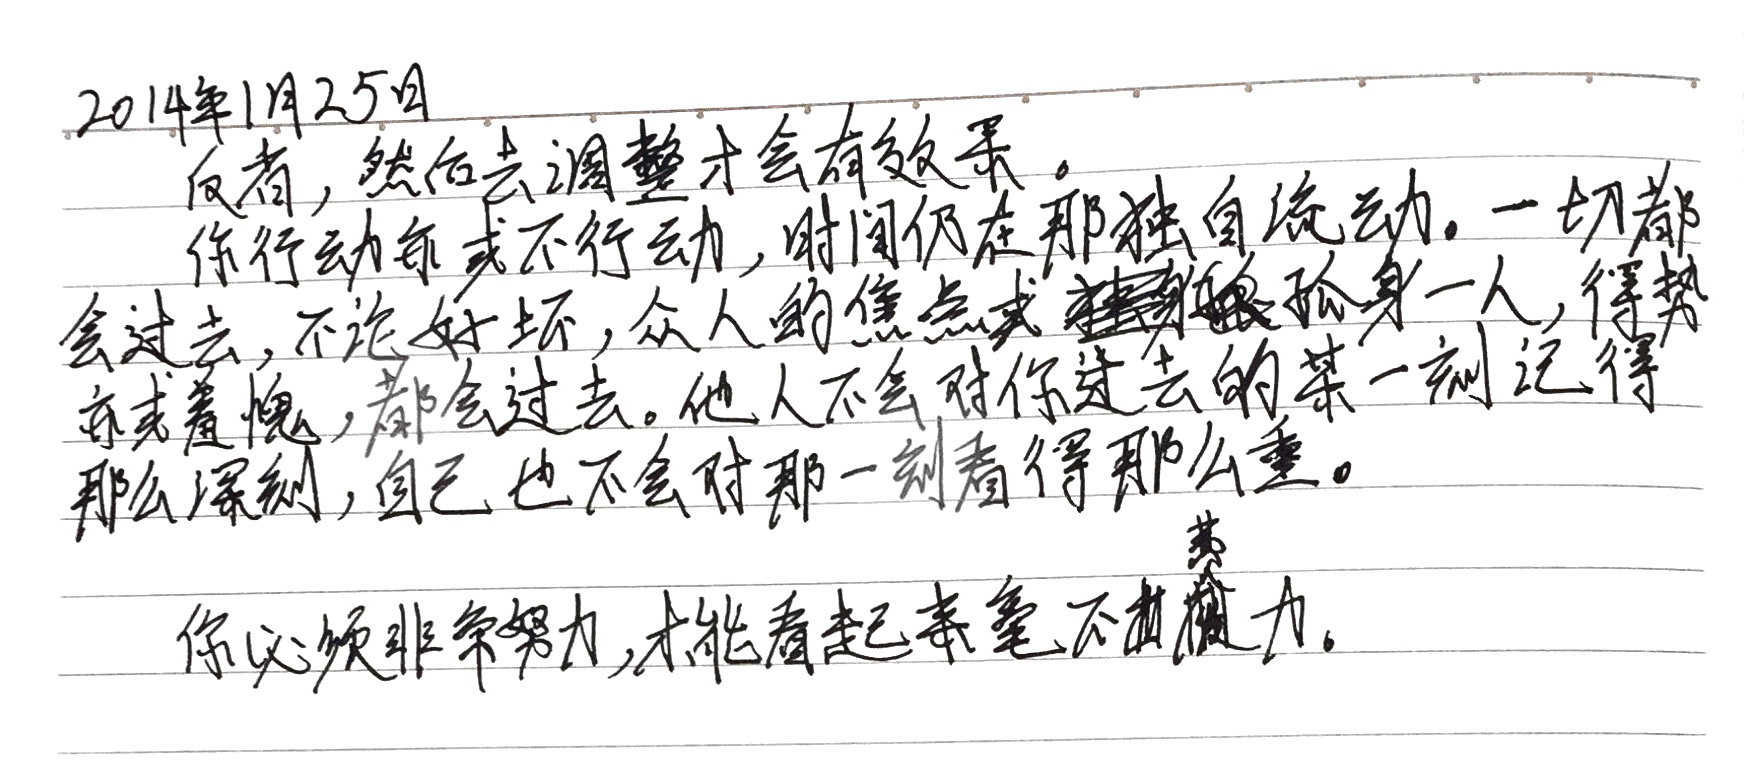 2014年1月25日
反省，然后去调整才会有效果。
你行动亦或不行动，时间仍在那独自流动。一切都
会过去，不论好坏，众人的焦点或孤身一人，得势
亦或羞愧，都会过去。他人不会对你过去的某一刻记得
那么深刻，自己也不会对那一刻看得那么重。
你必须非常努力，才能看起来毫不费力。